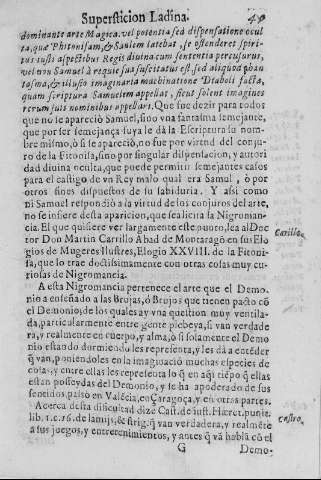 Supersticion Ladina. 49
dominante arte Magica. vel potentia sed dispensatione ocul
ta, quæ Phitonisam, & Saulem latebat, se ostenderet spiri-
tus iusti aspectibus Regis diuina eum sententia percusurus,
vel non Samuel à requie sua suscitatus est, sed aliquod phan
tasma, & illusio imaginaria machinatione Diaboli facta,
quam scriptura Samuelem appellat, sicut solent imagines
rerum suis nominibus appellari. Que fue dezir para todos
que no se apareciò Samuel, sino vna fantasma semejante,
que por ser semejança suya le dà la Escriptura su nom-
bre mismo, ò si se apareciò, no fue por virtud del conju-
ro de la Fitonisa, sino por singular dispensacion, y autori
dad diuina oculta, que puede permitir semejantes casos
para el castigo de vn Rey malo qual era Samul, ò por
otros fines dispuestos de su sabiduria. Y assi como
ni Samuel respondiò a la virtud de los conjuros del arte,
no se infiere desta aparicion, que sea licita la Nigroman-
cia. El que quisiere ver largamente este punto, lea al Doc
tor Don Martin Carrillo Abad de Montaragò en sus Elo
gios de Mugeres Ilustres, Elogio XXVIII. de la Fitoni-
sa, que lo trae doctissimamente con otras cosas muy cu-
riosas de Nigromancia.
Carillo
A esta Nigromancia pertenece el arte que el Demo-
nio a enseñado a las Brujas, ò Brujos que tienen pacto cõ
el Demonio, de los quales ay vna question muy ventila-
da, particularmente entre gente plebeya, si van verdade
ra, y realmente en cuerpo, y alma, ò si solamente el Demo
nio estando durmiendo les representa, y les dà a entẽder
q̃ van, poniendoles en la imaginaciõ muchas especies de
cosas, y entre ellas les representa lo q̃ en aql̃ tiẽpo q̃ ellas
estan posseydas del Demonio, y se ha apoderado de sus
sentidos, passò en Valẽcia, en Çaragoça, y en otras partes.
Acerca desta dificultad dize Cast. de iust. Hæret. punit.
lib. 1. c. 16. de lamijs, & strig. q̃ van verdadera, y realmẽte
a sus juegos, y entretenimientos, y antes q̃ va habla cõ el
Castro.
G Demo-